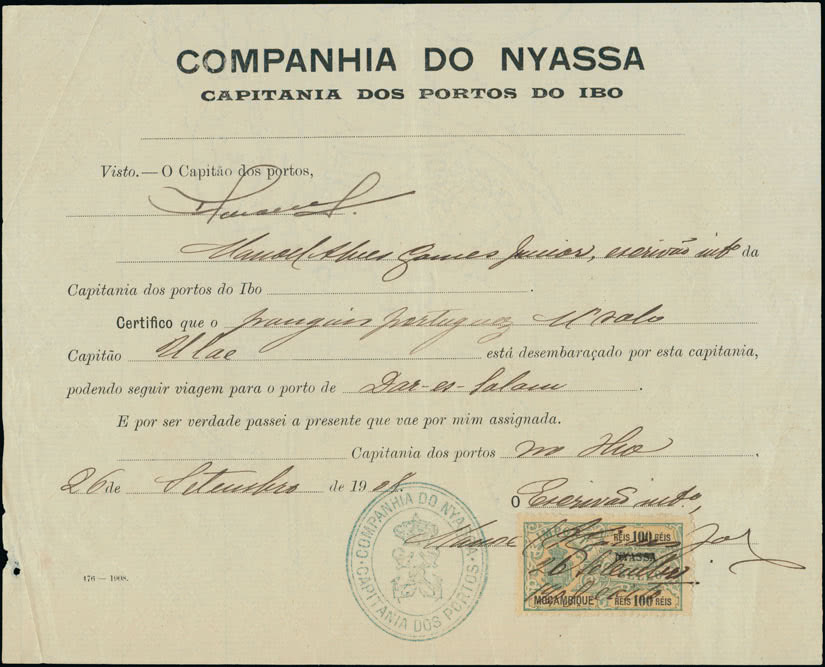 COMPANHIA DO NYASSA
CAPITANIA DOS PORTOS DO IBO
Visto.— O Capitão dos portos,
Manoel Alves Gomes Junior, escrivão intº da
Capitania dos portos do Ibo
Certifico que o pangaio portuguez
Capitão está desembaraçado por esta capitania,
podendo seguir viagem para o porto de Dar-es-Salam.
E por ser verdade passei a presente que vae por mim assignada.
Capitania dos portos no Ibo.
26 de Setembro de 19
O Escrivão intº,
COMPANHIA DO NYASSA
CAPITANIA DOS PORTOS
RÉIS 100 RÉIS
NYASSA
26 Setembro
MOÇAMBIQUE RÉIS 100 RÉIS
476 — 1908.